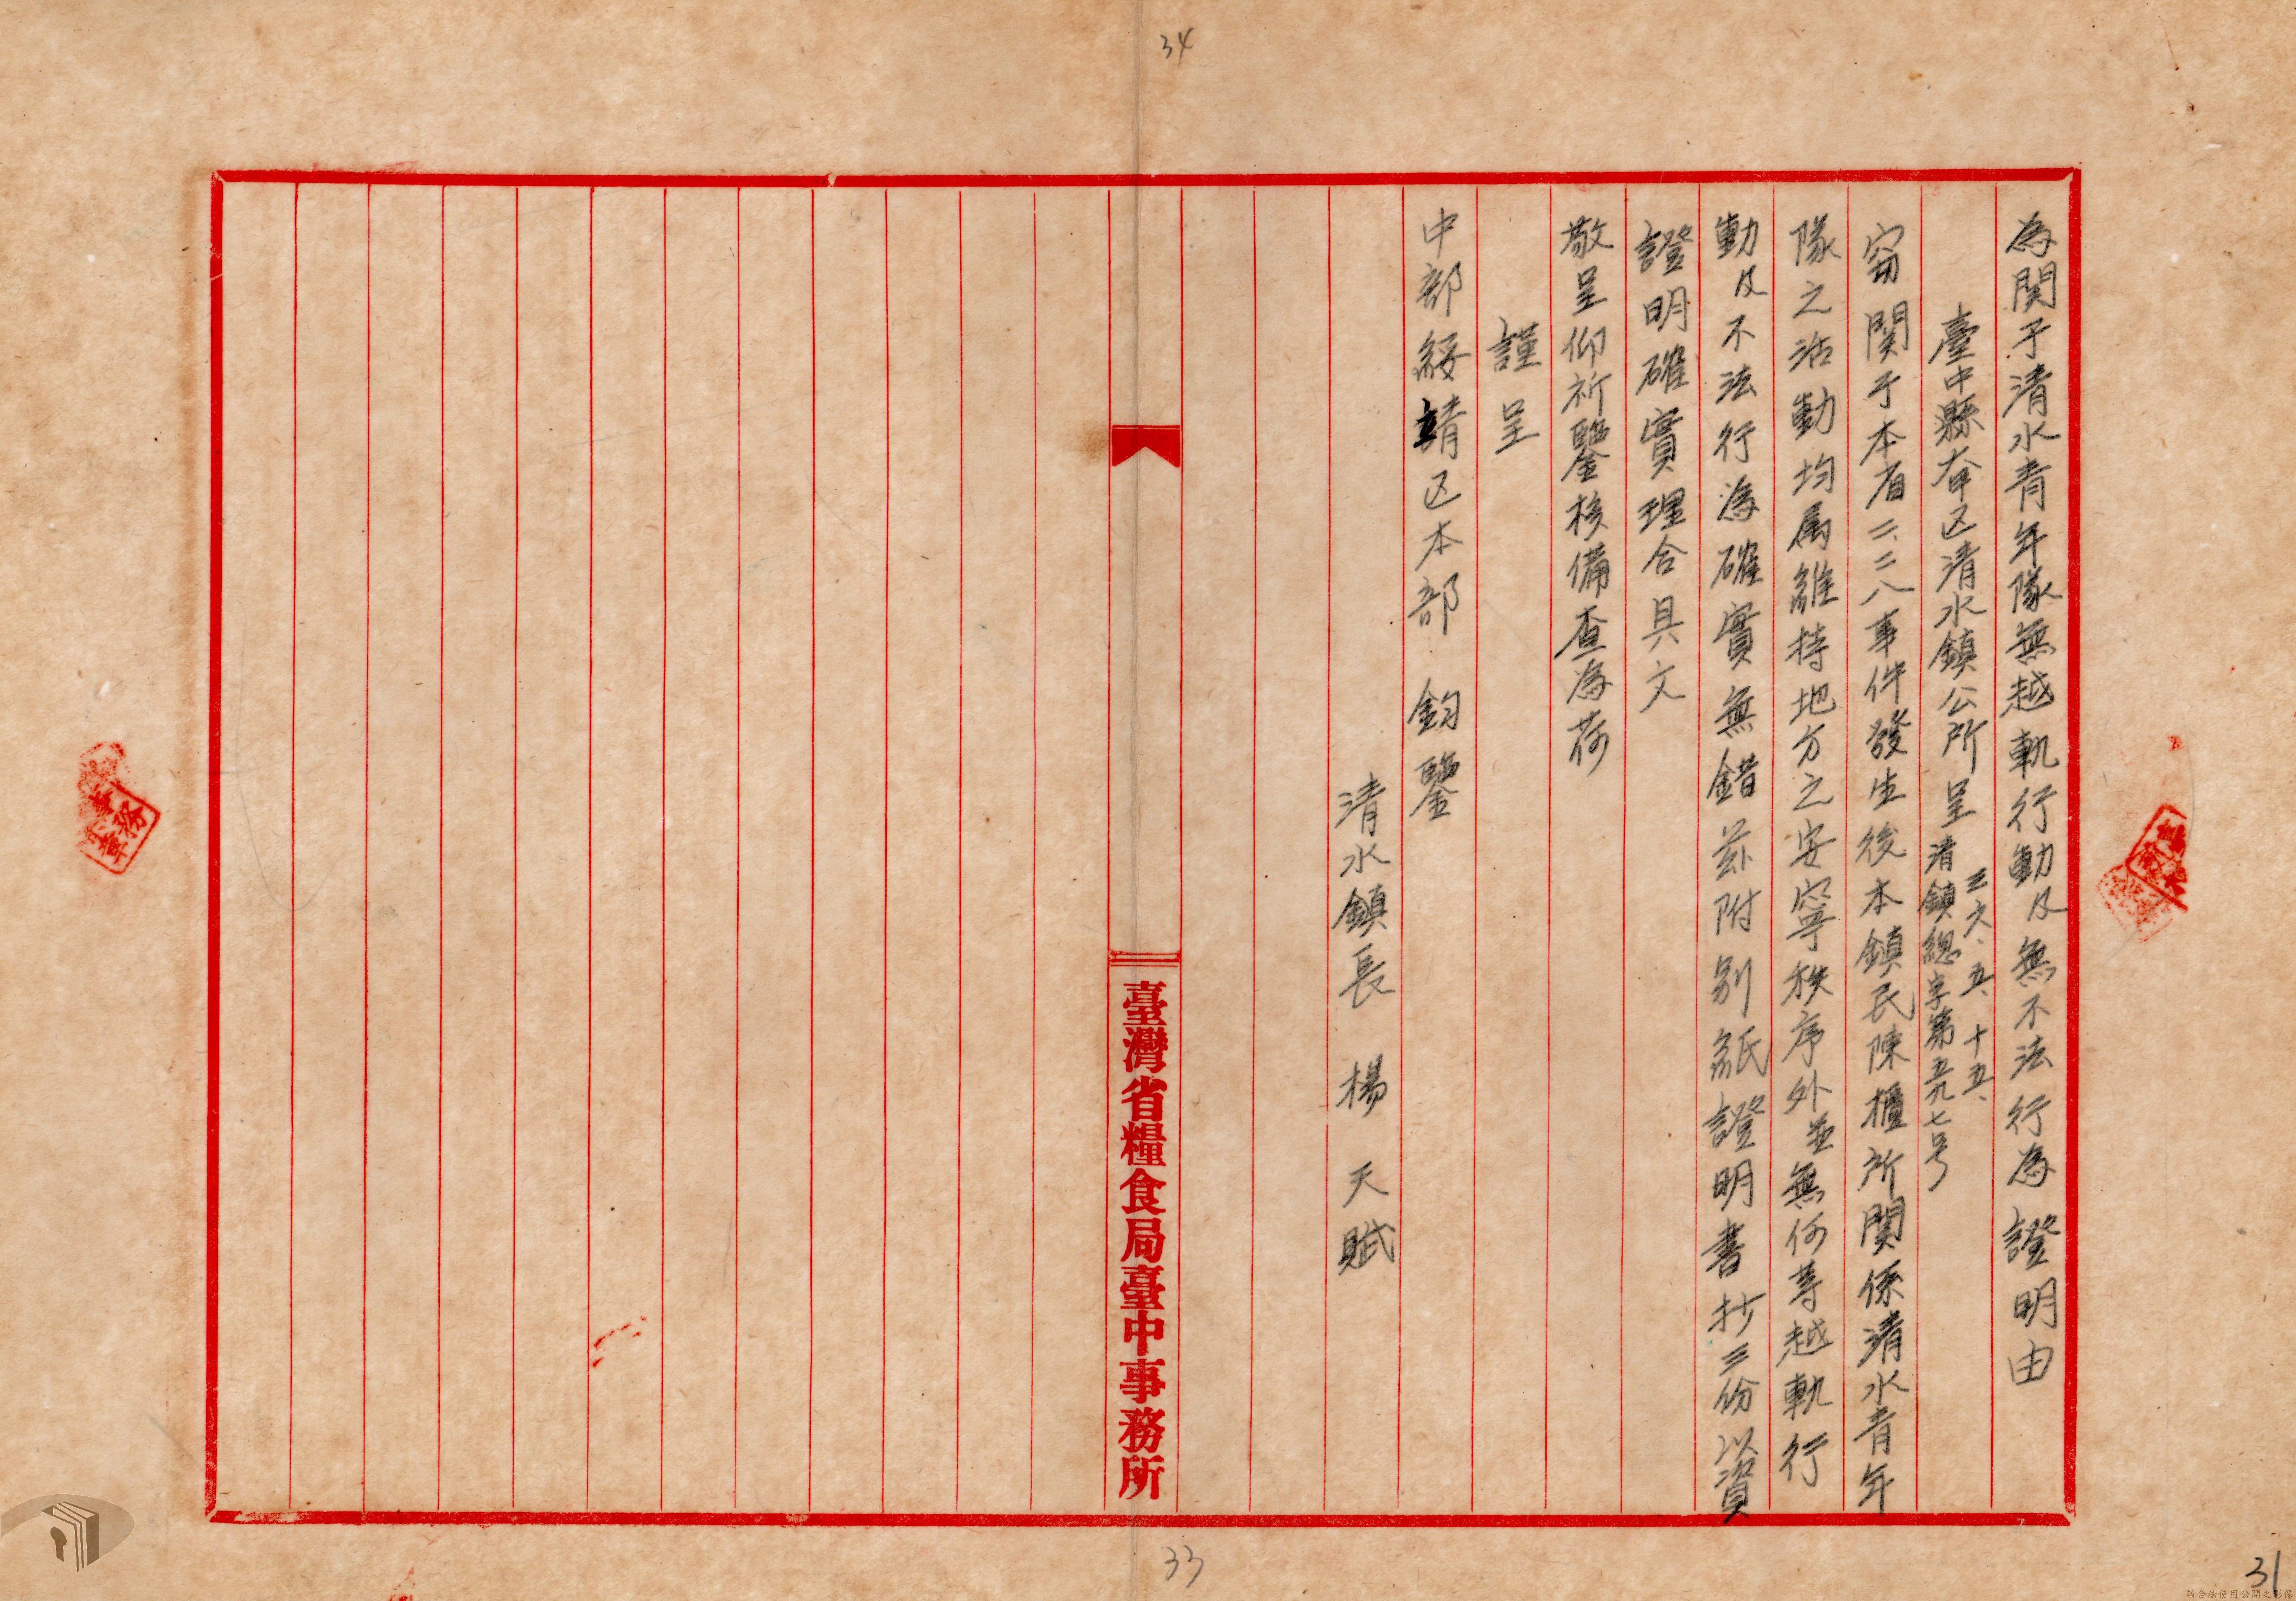 34
為関于清水青年隊無越軌行動及無不法行為證明由
臺中縣大甲区清水鎮公所呈
三六、五、十五、
清鎮總字第五九七号
窃関于本省二、二八事件發生後本鎮民陳櫃所関係清水青年
隊之活動均属維持地方之安寧秩序外並無何等越軌行
動及不法行為確實無錯茲附别紙證明書抄三份以資
證明確實理合具文
敬呈仰祈鑒核備查為荷
謹呈
中部綏靖区本部 鈞鑒
清水鎮長 楊天賦
臺灣省糧食局臺中事務所
33
31
請合法使用公開之影像